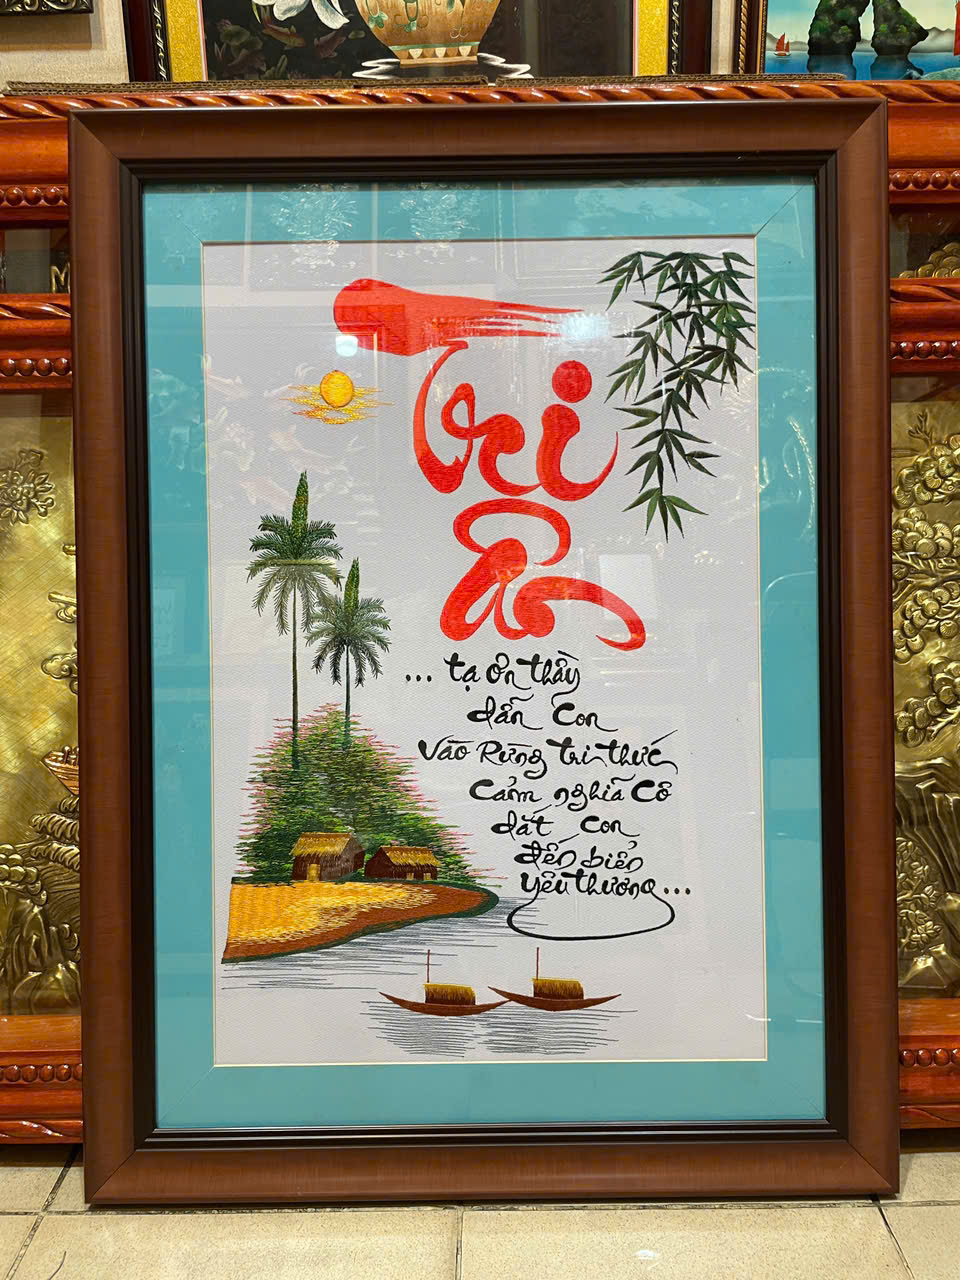 Tri
ân
... tạ ơn thầy
dẫn con
vào rừng tri thức
cảm nghĩa cô
dắt con
đến biển
yêu thương...